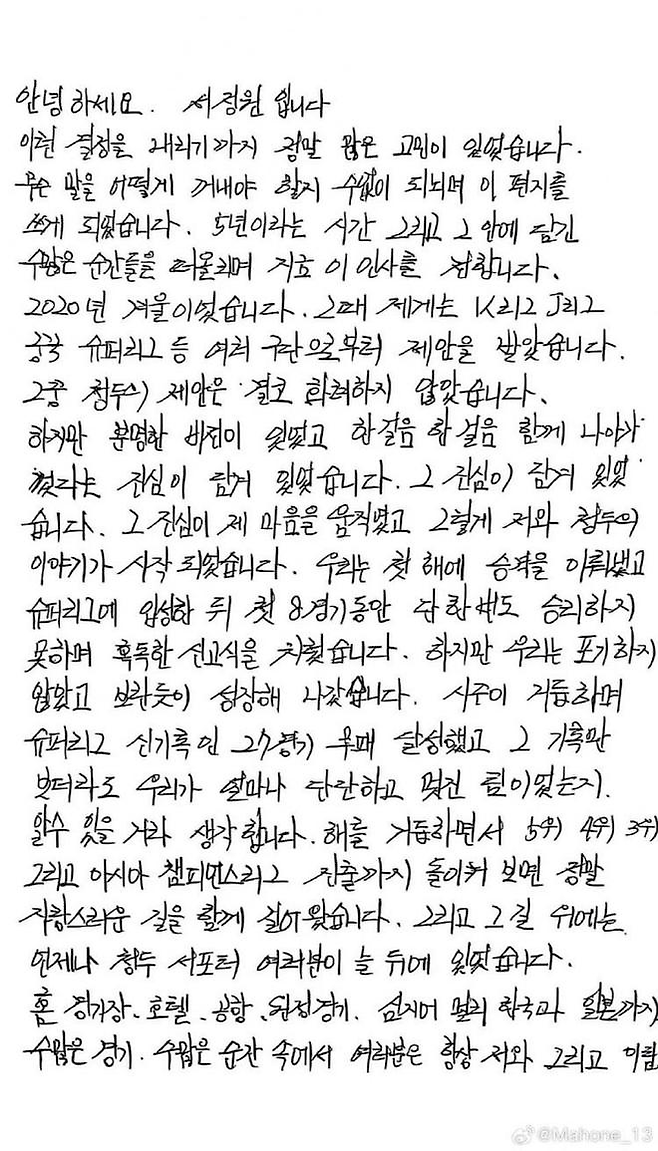 안녕하세요. 서정원 입니다
이런 결정을 내리기까지 정말 많은 고민이 있었습니다.
무슨 말을 어떻게 꺼내야 할지 수없이 되뇌며 이 편지를
쓰게 되었습니다. 5년이라는 시간 그리고 그 안에 담긴
수많은 순간들을 떠올리며 이 인사를 전합니다.
2020년 겨울이었습니다. 그때 제게는 K리그 J리그
중국 슈퍼리그 등 여러 구단으로부터 제안을 받았습니다.
그중 청두의 제안은 결코 화려하지 않았습니다.
하지만 분명한 비전이 있었고 한걸음 한걸음 함께 나아가
겠다는 진심이 담겨 있었습니다. 그 진심이 담겨 있었
습니다. 그 진심이 제 마음을 움직였고 그렇게 저와 청두의
이야기가 시작 되었습니다. 우리는 첫 해에 승격을 이뤄냈고
슈퍼리그에 입성한 뒤 첫 8경기동안 단 한번도 승리하지
못하며 혹독한 신고식을 치뤘습니다. 하지만 우리는 포기하지
않았고 보란듯이 성장해 나갔습니다. 시즌이 거듭하며
슈퍼리그 신기록인 27경기 무패 달성했고 그 기록만
보더라도 우리가 얼마나 단단하고 멋진 팀이었는지.
알수 있을 거라 생각합니다. 해를 거듭하면서 5위 4위 3위
그리고 아시아 챔피언스리그 진출까지 돌이켜 보면 정말
자랑스러운 길을 함께 걸어왔습니다. 그리고 그 길 위에는
언제나 청두 서포터 여러분이 늘 뒤에 있었습니다.
홈 경기장. 호텔. 공항. 원정경기. 심지어 멀리 한국과 일본까지
수많은 경기. 수많은 순간 속에서 여러분은 항상 저와 그리고 이팀
@Mahone_13